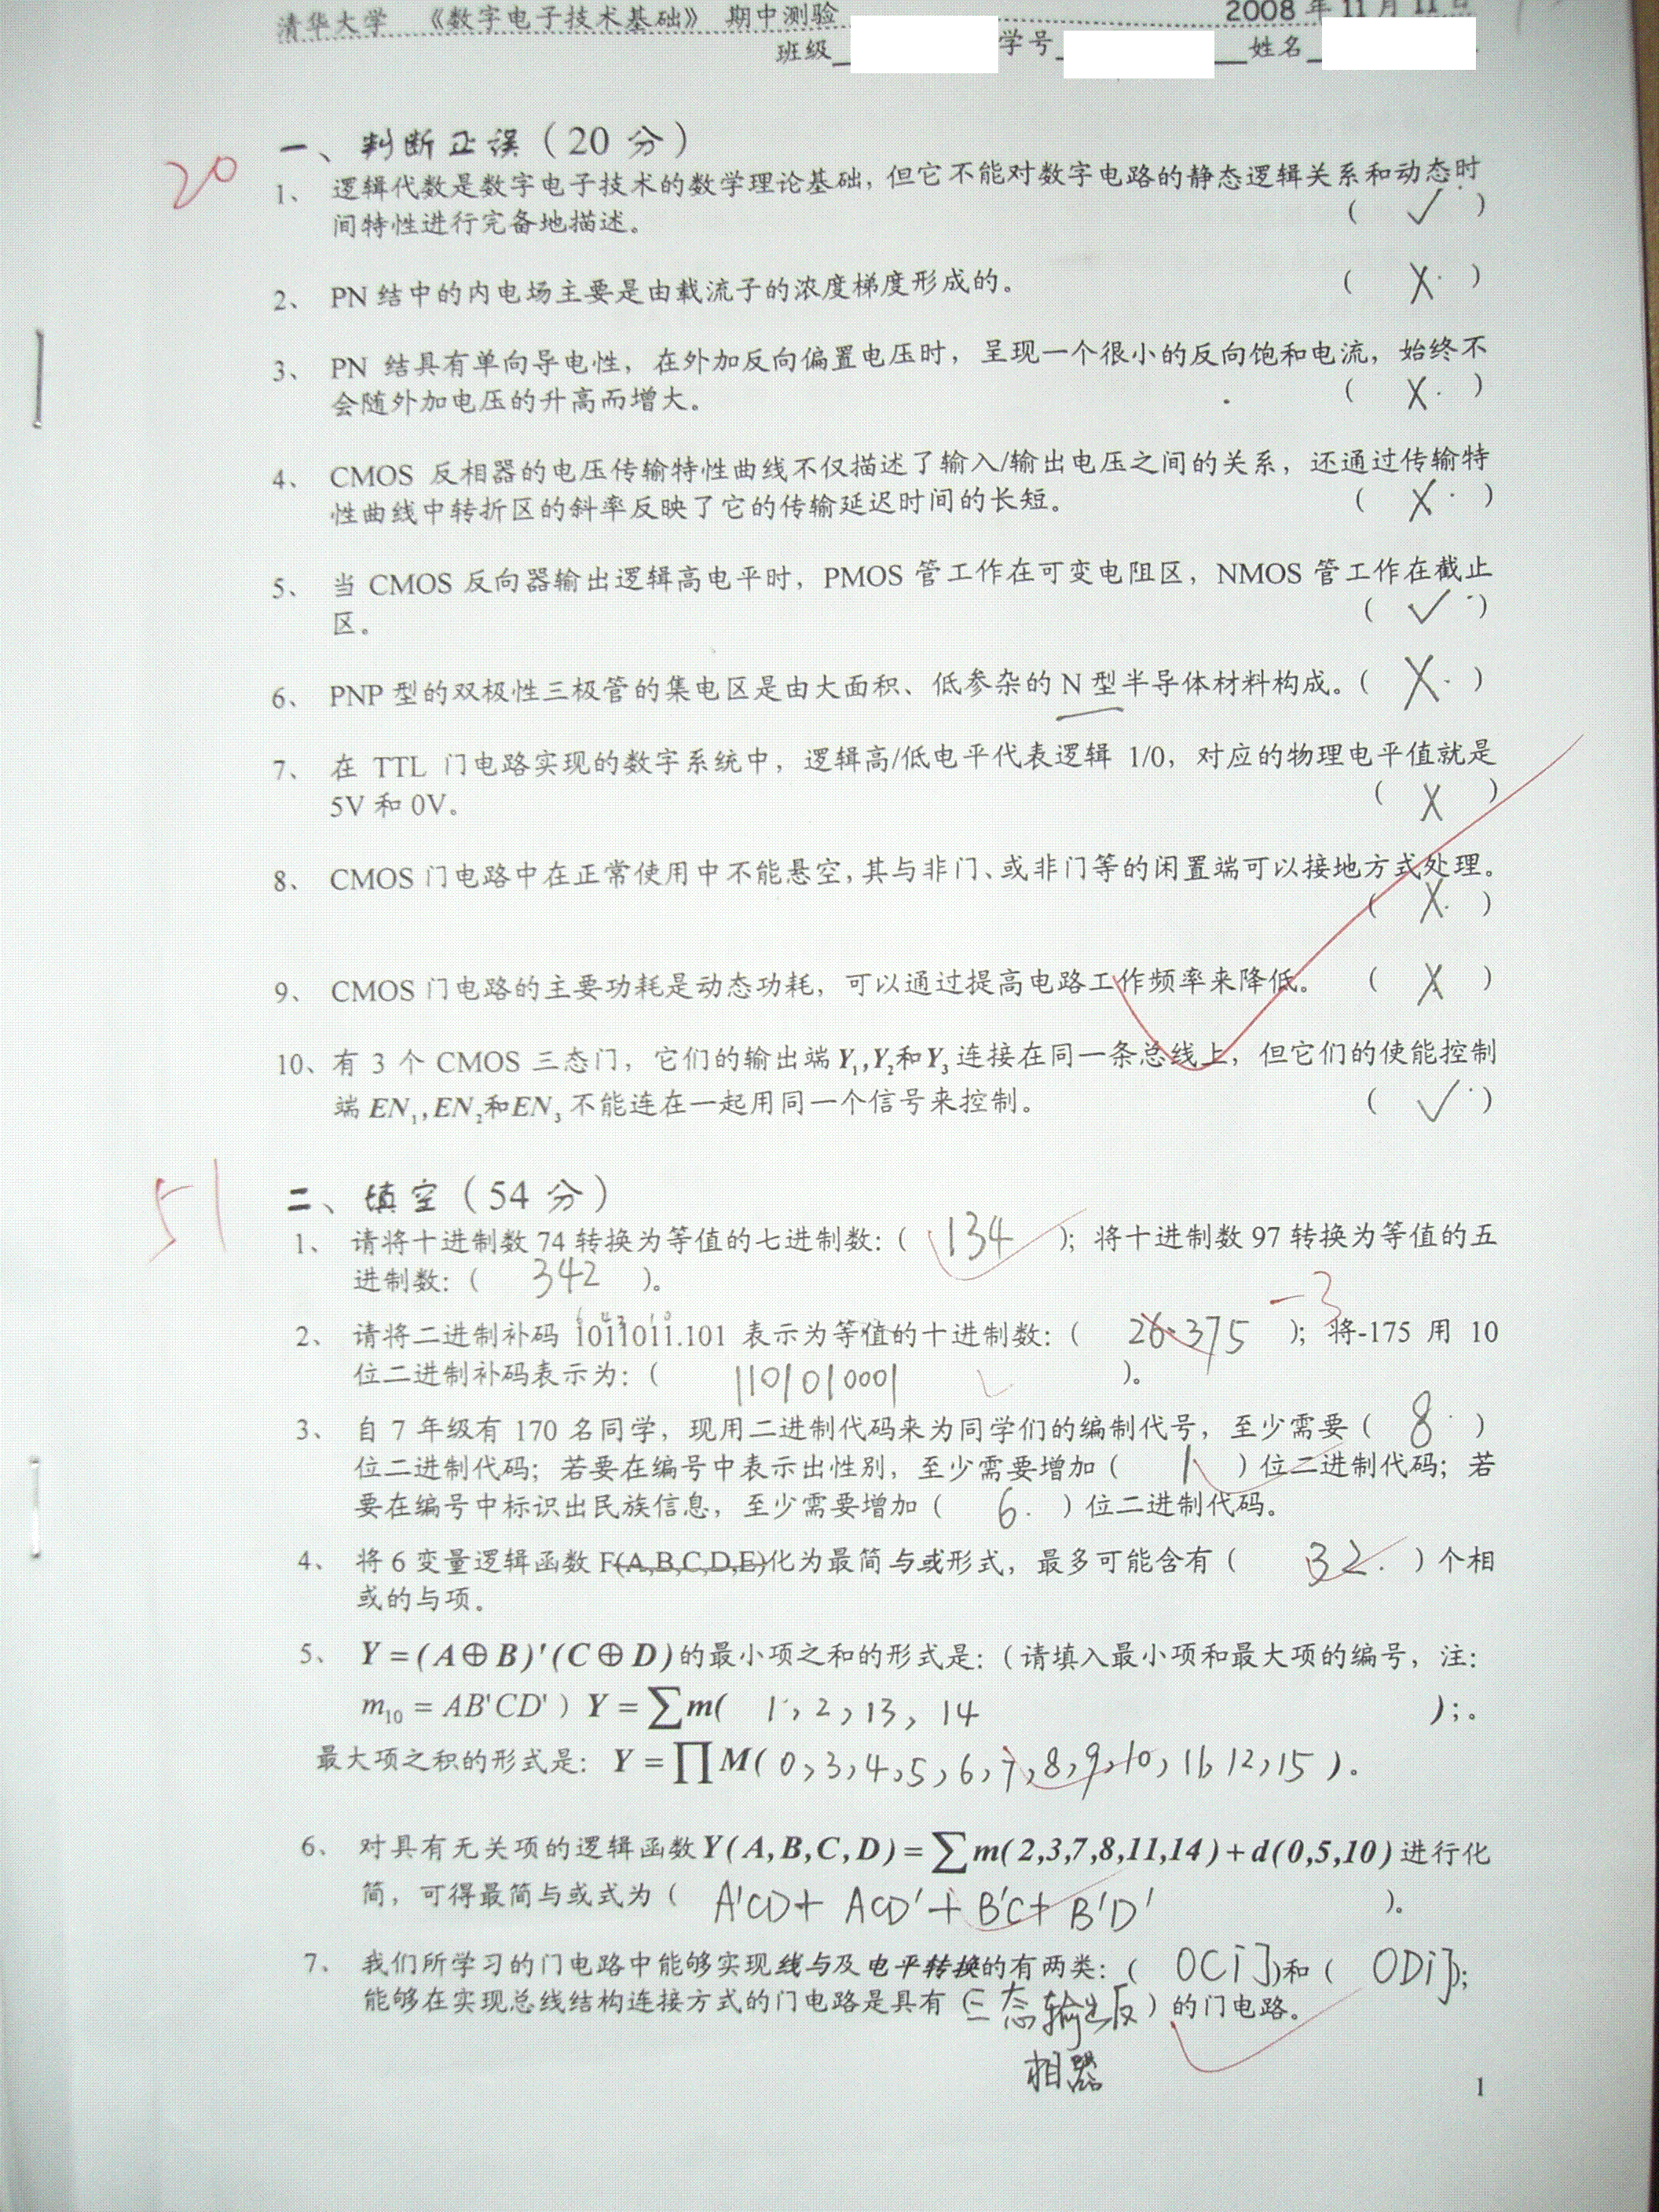 清华大学 《数字电子技术基础》 期中测验 2008 年 11 月 11 日
班级 学号 姓名
20
一、判断正误（20 分）
1、 逻辑代数是数字电子技术的数学理论基础，但它不能对数字电路的静态逻辑关系和动态时
间特性进行完备地描述。 （ ✓ ）
2、 PN 结中的内电场主要是由载流子的浓度梯度形成的。 （ X ）
3、 PN 结具有单向导电性，在外加反向偏置电压时，呈现一个很小的反向饱和电流，始终不
会随外加电压的升高而增大。 （ X ）
4、 CMOS 反相器的电压传输特性曲线不仅描述了输入/输出电压之间的关系，还通过传输特
性曲线中转折区的斜率反映了它的传输延迟时间的长短。 （ X ）
5、 当 CMOS 反向器输出逻辑高电平时，PMOS 管工作在可变电阻区，NMOS 管工作在截止
区。 （ ✓ ）
6、 PNP 型的双极性三极管的集电区是由大面积、低参杂的 N 型半导体材料构成。（ X ）
7、 在 TTL 门电路实现的数字系统中，逻辑高/低电平代表逻辑 1/0，对应的物理电平值就是
5V 和 0V。 （ X ）
8、 CMOS 门电路中在正常使用中不能悬空，其与非门、或非门等的闲置端可以接地方式处理。
（ X ）
9、 CMOS 门电路的主要功耗是动态功耗，可以通过提高电路工作频率来降低。 （ X ）
10、有 3 个 CMOS 三态门，它们的输出端 Y₁,Y₂和Y₃ 连接在同一条总线上，但它们的使能控制
端 EN₁,EN₂和EN₃ 不能连在一起用同一个信号来控制。 （ ✓ ）
51
二、填空（54 分）
1、 请将十进制数 74 转换为等值的七进制数：（ 134 ）；将十进制数 97 转换为等值的五
进制数：（ 342 ）。
-3
2、 请将二进制补码 1011011.101 表示为等值的十进制数：（ 26.375 ）；将-175 用 10
位二进制补码表示为：（ 1101010001 ）。
3、 自 7 年级有 170 名同学，现用二进制代码来为同学们的编制代号，至少需要（ 8 ）
位二进制代码；若要在编号中表示出性别，至少需要增加（ 1 ）位二进制代码；若
要在编号中标识出民族信息，至少需要增加（ 6 ）位二进制代码。
4、 将 6 变量逻辑函数 F(A,B,C,D,E)化为最简与或形式，最多可能含有（ 32 ）个相
或的与项。
5、 Y = (A⊕B)'(C⊕D)的最小项之和的形式是：（请填入最小项和最大项的编号，注：
m₁₀ = AB'CD' ）Y = ∑m( 1, 2, 13, 14 );。
最大项之积的形式是：Y = ∏M( 0, 3, 4, 5, 6, 7, 8, 9, 10, 11, 12, 15 )。
6、 对具有无关项的逻辑函数Y(A,B,C,D)=∑m(2,3,7,8,11,14)+d(0,5,10)进行化
简，可得最简与或式为（ A'CD + ACD' + B'C + B'D' ）。
7、 我们所学习的门电路中能够实现线与及电平转换的有两类：（ OC门 ）和（ OD门 ）；
能够在实现总线结构连接方式的门电路是具有（三态输出反）的门电路。
相器
1